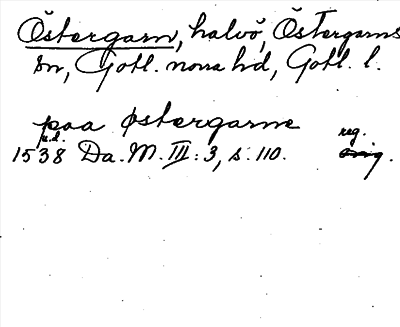 Östergarn, halvö, Östergarns
sn, Gotl. norra hd, Gotl. l.
paa østergarne
u.d. reg.
1538 Da. M. III: 3, s. 110. orig.